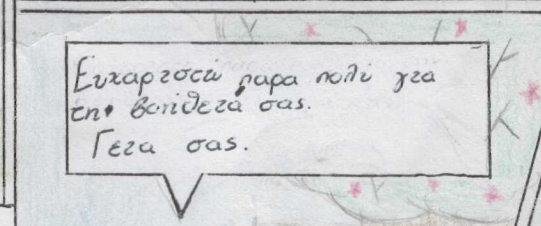 Ευχαριστώ παρα πολύ για
τη βοήθειά σας.
Γεια σας.